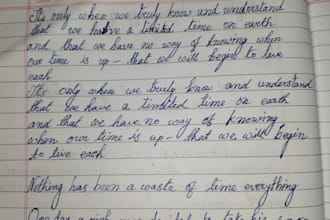 It's only when we truly know and understand
that we have a limited time on earth
and that we have no way of knowing when
our time is up – that we will begin to live
each
It's only when we truly know and understand
that we have a limited time on earth
and that we have no way of knowing
when our time is up – that we will begin
to live each
Nothing has been a waste of time everything
One day a